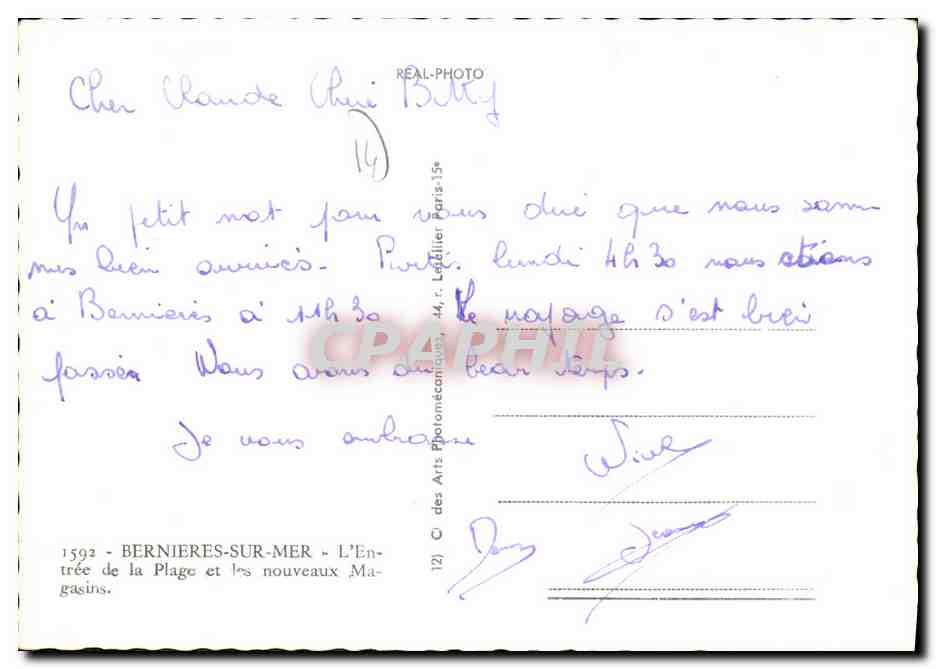 REAL-PHOTO
Cher Claude Chère
14
Un petit mot pour vous dire que nous som
mes bien arrivés. Partis lundi 4h30 nous étions
à Bernières à 11h30 Le voyage s'est bien
passé. Nous avons du beau temps.
Je vous embrasse
CPAPHIL
1592 - BERNIERES-SUR-MER - L'En-
trée de la Plage et les nouveaux Ma-
gasins.
12) C des Arts Photomécaniques, 44, r. Letellier Paris-15e